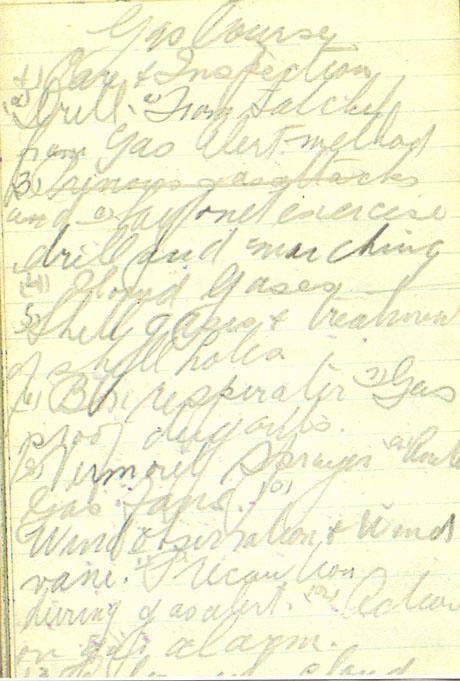 Gas Course
1) Care & Inspection
(2) Drill. a) From Satchel
from Gas Alert method
(3) gas attacks
and c) bayonet exercise
drill and marching
(4) Cloud Gases
5) Shell gases & treatment
of shell holes
6) Box respirator 7) Gas
proof dugouts.
8) Vermorel Sprayers
Gas fans. 10)
Wind Observation & Wind
vane. Precaution
during gas alert. (12) Action
on gas alarm.
cloud